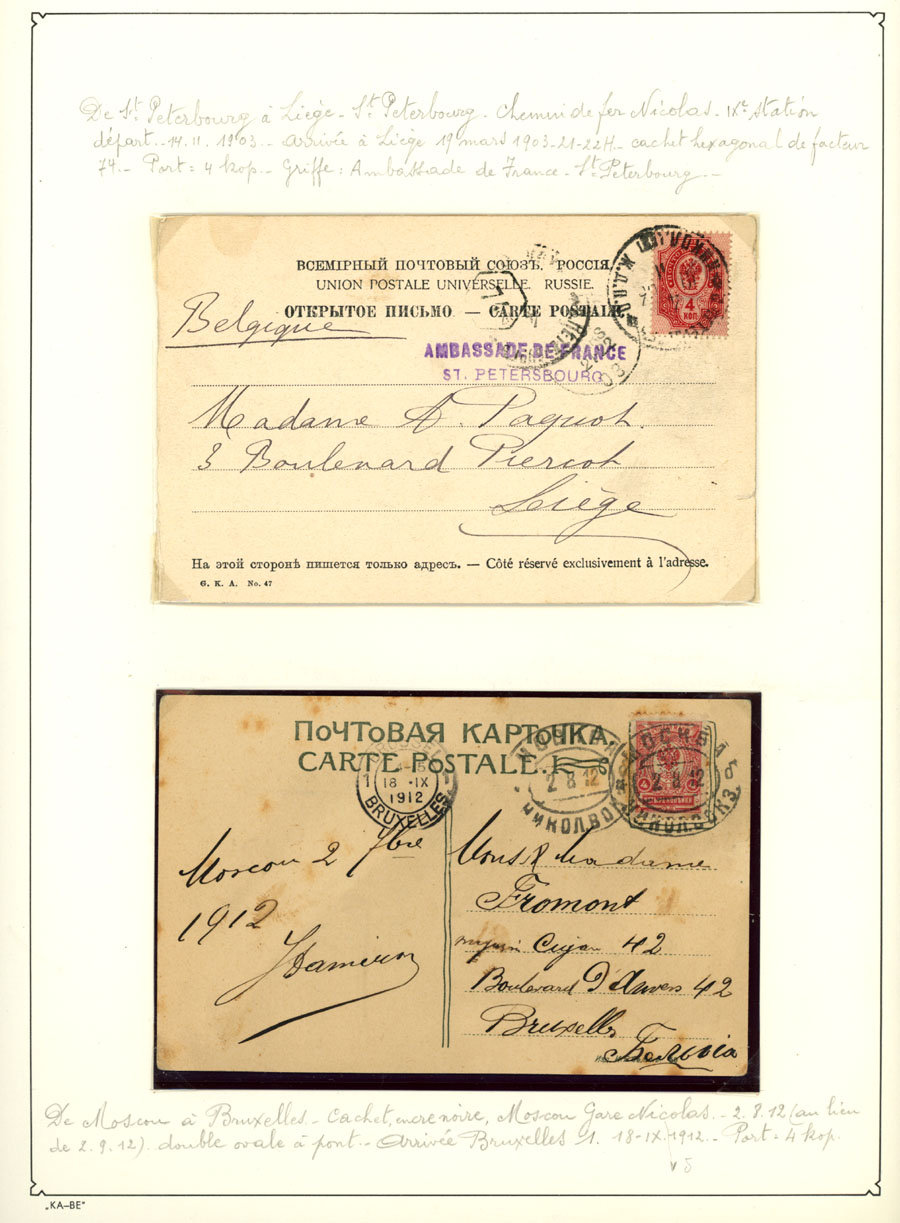 De St. Peterbourg à Liège - St. Peterbourg - Chemin de fer Nicolas - IXe station
départ - 14.II.1903 - arrivée à Liège 19 mars 1903 - 21-22H - cachet hexagonal de facteur
74. - Port: 4 kop. - Griffe: Ambassade de France - St. Peterbourg. -
ВСЕМІРНЫЙ ПОЧТОВЫЙ СОЮЗЪ. РОССІЯ.
UNION POSTALE UNIVERSELLE. RUSSIE.
ОТКРЫТОЕ ПИСЬМО. — CARTE POSTALE.
4
КОП.
Belgique
AMBASSADE DE FRANCE
ST. PETERSBOURG
Madame A. Paquot.
3 Boulevard Piercot
Liège
На этой сторонѣ пишется только адресъ. — Côté réservé exclusivement à l'adresse.
G. K. A. No. 47
ПОЧТОВАЯ КАРТОЧКА.
CARTE POSTALE.
1
18 - IX
1912
BRUXELLES
МОСКВА
2 8 12
НИКОЛ. ВОКЗ
МОСКВА
2 8 12
НИКОЛ. ВОКЗ.
Moscou 2 7bre
1912
Mons & Madame
Fromont
42
Boulevard D'Anvers 42
Bruxelles
De Moscou à Bruxelles - Cachet, encre noire, Moscou Gare Nicolas - 2.8.12 (au lieu
de 2.9.12) double ovale à pont. - Arrivée Bruxelles 1. 18-IX 1912. - Port = 4 kop.
"KA–BE"